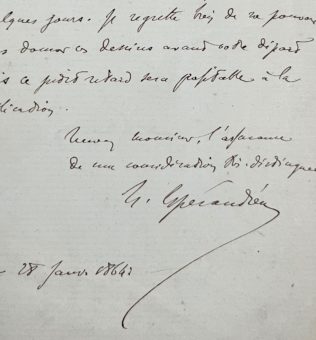 quelques jours. Je regrette bien de ne pouvoir
donner ces dessins avant votre départ
is ce petit retard sera profitable à la
dication.
Recevez monsieur, l'assurance
de ma considération très-distinguée
H. Espérandieu
28 Janv 1864